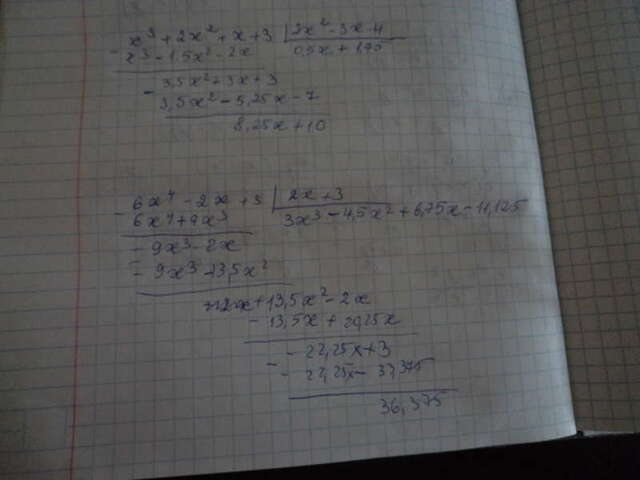 x³ + 2x² + x + 3 | 2x² - 3x - 4
- x³ - 1,5x² - 2x | 0,5x + 1,75
- 3,5x² + 3x + 3
3,5x² - 5,25x - 7
8,25x + 10
- 6x⁴ - 2x + 3 | 2x + 3
6x⁴ + 9x³ | 3x³ - 4,5x² + 6,75x - 11,125
- 9x³ - 2x
- - 9x³ - 13,5x²
+ 13,5x² - 2x
- 13,5x + 20,25x
- 22,25x + 3
- - 22,25x - 33,375
36,375